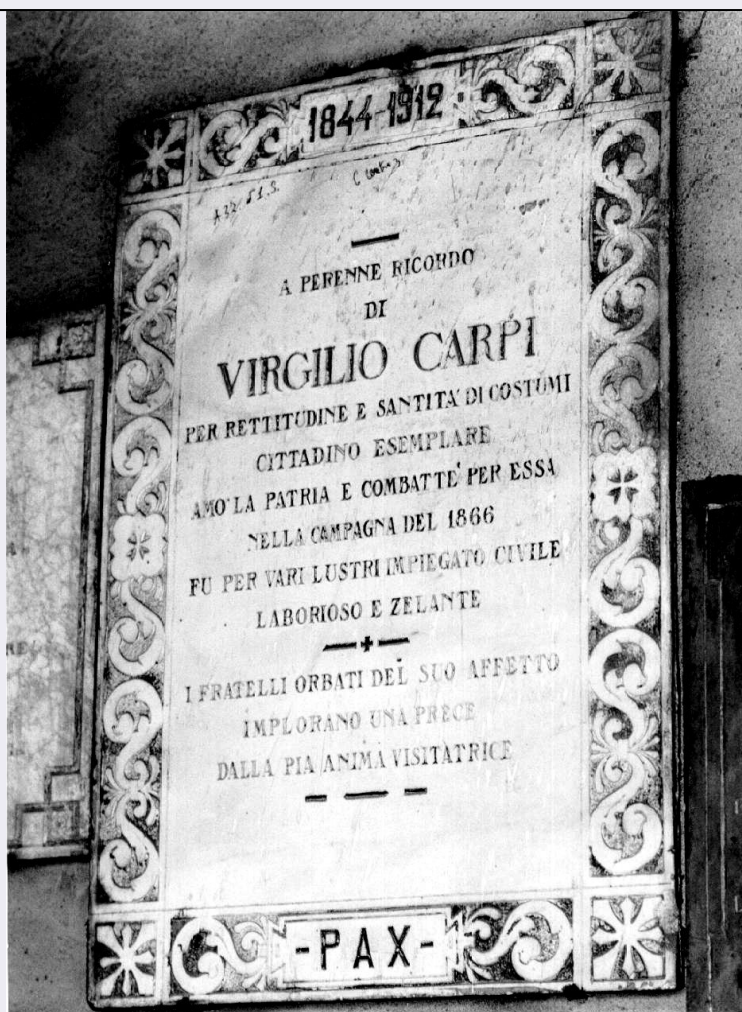 1844-1912
A PERENNE RICORDO
DI
VIRGILIO CARPI
PER RETTITUDINE E SANTITA' DI COSTUMI
CITTADINO ESEMPLARE
AMO' LA PATRIA E COMBATTE' PER ESSA
NELLA CAMPAGNA DEL 1866
FU PER VARI LUSTRI IMPIEGATO CIVILE
LABORIOSO E ZELANTE
I FRATELLI ORBATI DEL SUO AFFETTO
IMPLORANO UNA PRECE
DALLA PIA ANIMA VISITATRICE
-PAX-